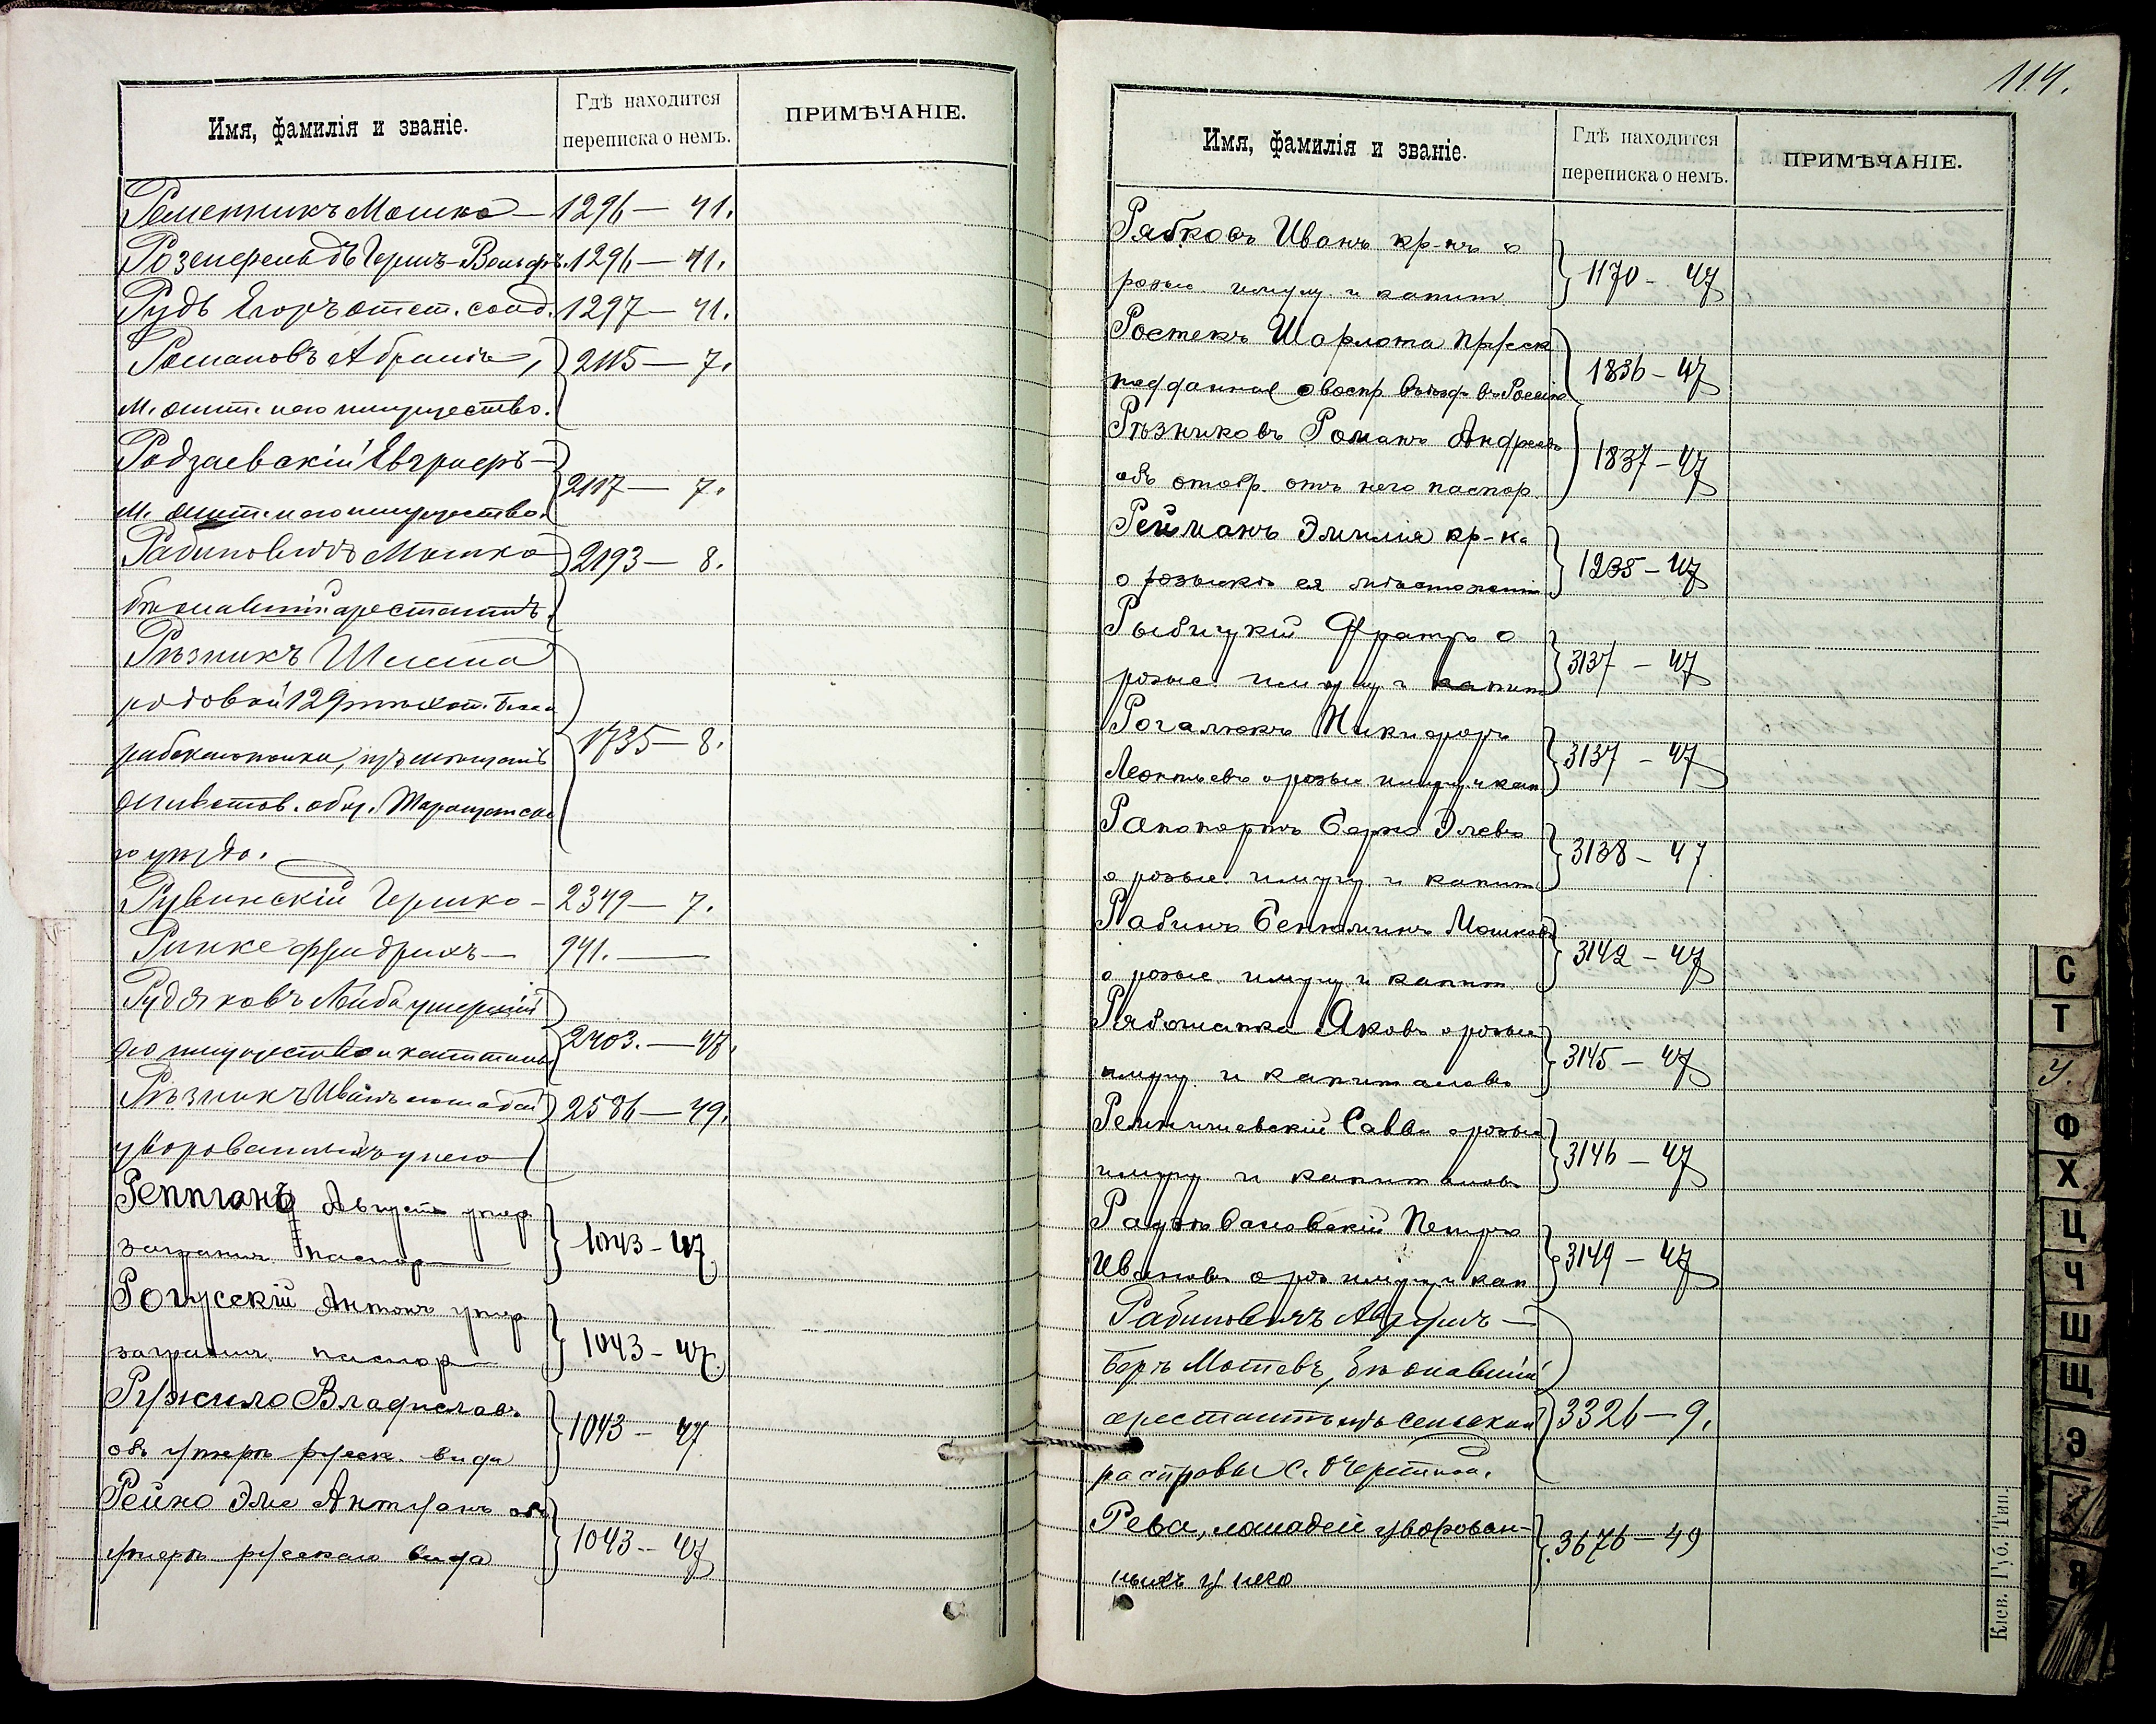 Имя, фамилія и званіе.
Гдѣ находится
переписка о немъ.
ПРИМѢЧАНІЕ.
Ременникъ Мошко — 1296 — 41.
Розенфельдъ Герш-Вольфъ. 1296 — 41.
Рудь Егоръ отст. солд. 1297 — 41.
Романовъ Абрамъ, 2115 — 7.
м. опит. него имущество.
Родзаевскій Евграфъ — 2117 — 7.
м. него имущество.
Рабиновичъ Мошко 2193 — 8.
бѣжавшій арестантъ.
Рѣзникъ Шлема
рядовой 129 пѣхот. Бесса
рабскаго полка, изъ мѣщанъ 1735 — 8.
общ. Таращанска
го уѣзда.
Рувинскій Гершко — 2349 — 7.
Ринке Фридрихъ — 941. —
Рудяковъ Лейба умершій
его имущество и капиталы 2403. — 47.
Рѣзникъ Иванъ лошадей 2586 — 49.
уворованныхъ у него
Август утер 1043 — 47
загранич. паспор
Рогусскій Антонъ утер
загранич. паспор 1043 — 47.
Ружило Владиславъ 1043 — 47
объ утерѣ русск. вида
Рейно Эме Антуанъ объ
утерѣ русскаго вида 1043 — 47
114.
Имя, фамилія и званіе.
Гдѣ находится
переписка о немъ.
ПРИМѢЧАНІЕ.
Рябковъ Иванъ кр-нъ о
розыс. имущ. и капит 1170 — 47
Ростекъ Шарлота прусск
подданная о воспр. въѣзд. въ Россію 1836 — 47
Рѣзниковъ Романъ Андреевъ
объ отобр. отъ него паспор. 1837 — 47
Рейманъ Эмилія кр-ка
о розыскѣ ея мѣстожит 1235 — 47
Рыбицкій Францъ о
розыс. имущ. и капит 3137 — 47
Рогалюкъ Никифоръ
Леонтьевъ о розыс. имущ. и кап 3137 — 47
Рапопортъ Берко Элевъ
о розыс. имущ. и капит 3138 — 47
Рабинъ Беніаминъ Мошковъ
о розыс. имущ. и капит. 3142 — 47
Рябошапка Яковъ о розыс
имущ. и капиталовъ 3145 — 47
Савва о розыс
имущ. и капиталовъ 3146 — 47
Петръ
Ивановъ о роз имущ. и кап 3149 — 47
Рабиновичъ —
Беръ Мотевъ, бѣжавшій
арестантъ изъ сельской 3326 — 9.
расправы с.
Рева, лошадей уворован-
ныхъ у него 3676 — 49
Кіев. Губ. Тип.
С
Т
У.
Ф
Х
Ц
Ч
Ш
Щ
Э
Я